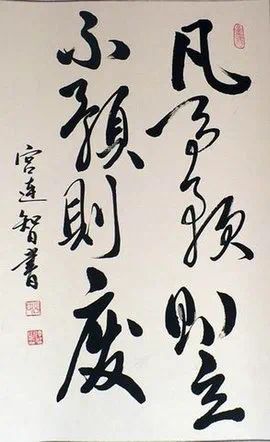 凡事预则立
不预则废
宫连智书